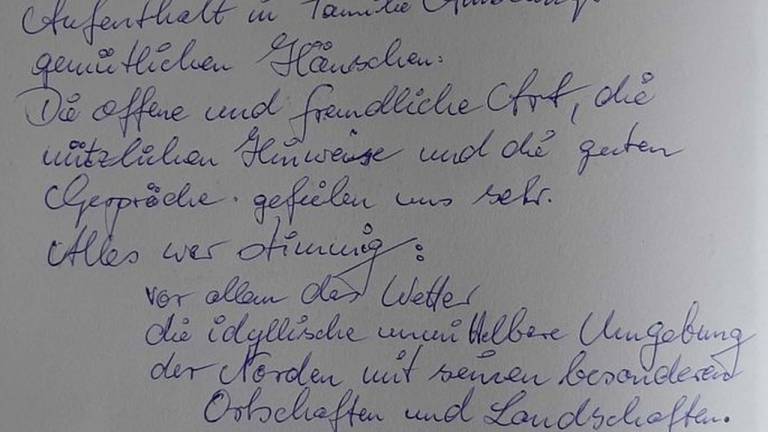 Aufenthalt in Familie
gemütlichen Häuschen.
Die offene und freundliche Art, die
nützlichen Hinweise und die guten
Gespräche gefielen uns sehr.
Alles war stimmig:
vor allem das Wetter
die idyllische unmittelbare Umgebung
der Norden mit seinen besonderen
Ortschaften und Landschaften.